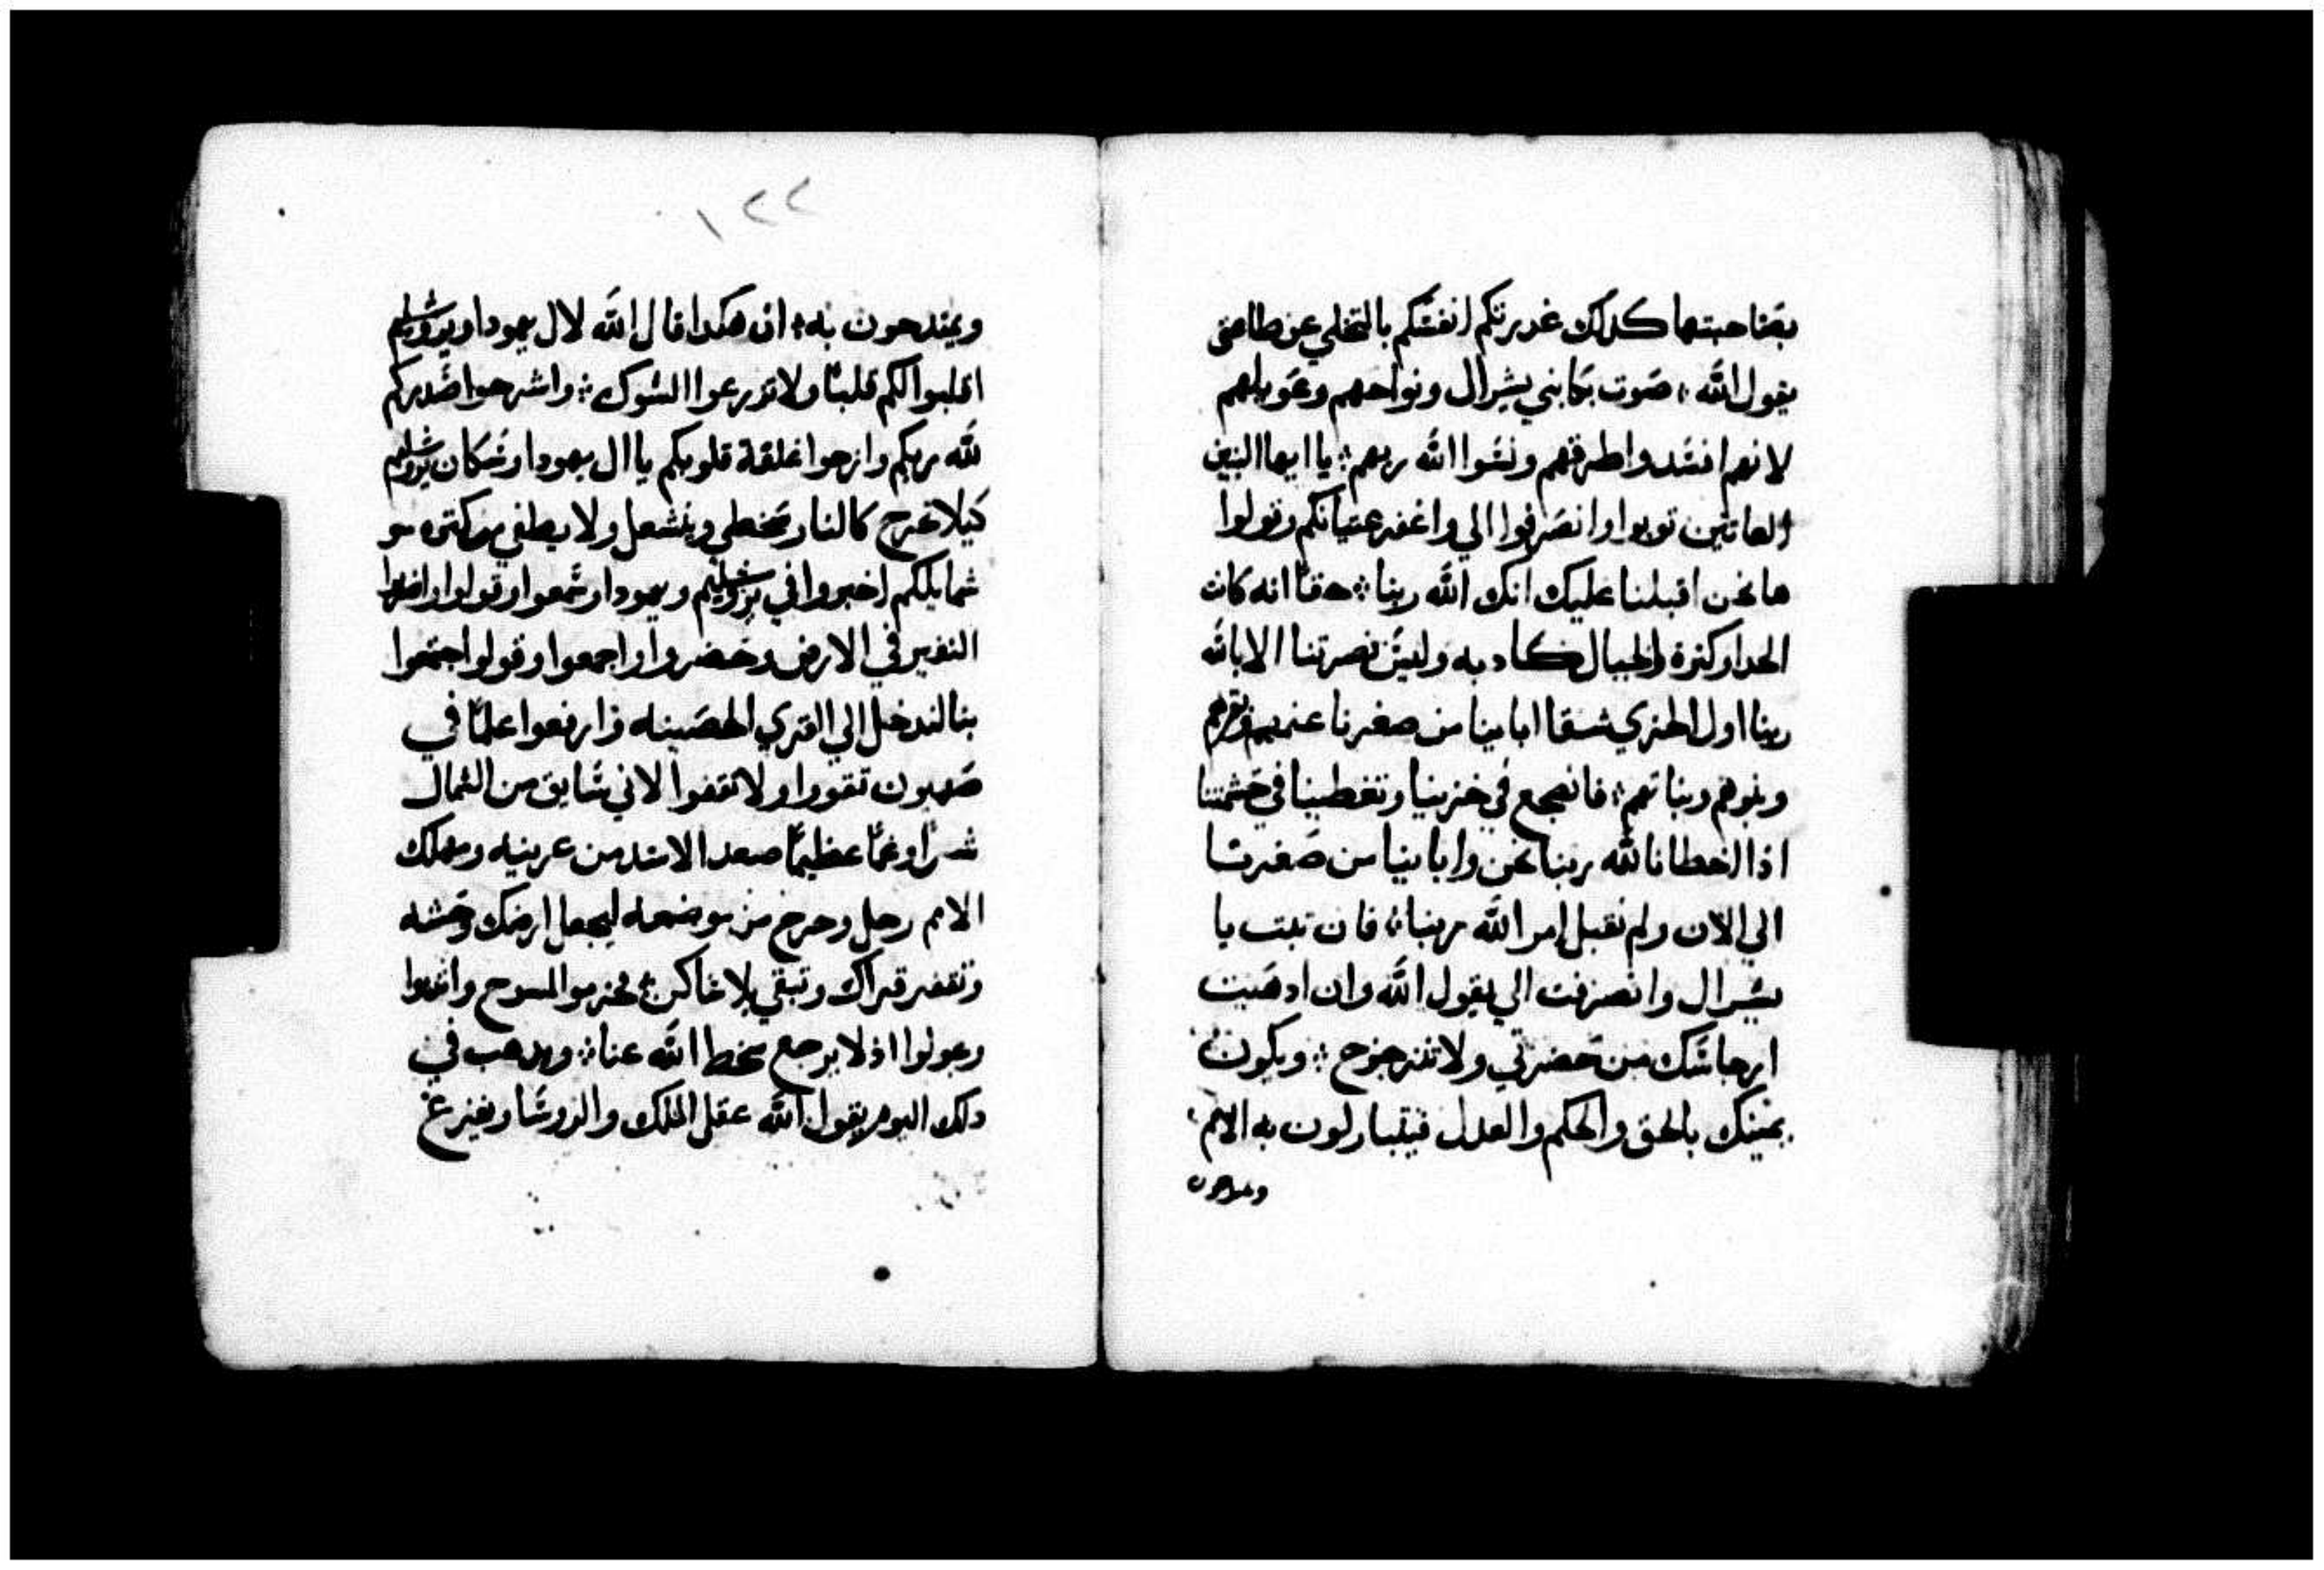 بصاحبتها كدلك غدرتكم انفسكم بالتخلي عن طاعتى
يقول الله ؞ صوت بكا بني يشرال ونواحهم وعويلهم
لانهم افسدوا طرقهم ونسوا الله ربهم ؞ يا ايها البنين
العاتين توبوا وانصرفوا الي واغفر عتيانكم وقولوا
ها نحن اقبلنا عليك انك الله ربنا ؞ حقا انه كان
الحدا وكثرة والجبال كاد به وليس نصرتنا الا بالله
ربنا اول الخزي شقا اباينا من صغرنا غنمهم وبقرهم
وبنوهم وبناتهم ؞ فانضجع في خزينا وتغطينا في حشمتنا
اذا اخطانا لله ربنا نحن واباينا من صغرنا
الي الان ولم نقبل امر الله ربنا ؞ فان تبت يا
يشرال وانصرفت الي يقول الله وان ادهبت
ارجاسك من حضرتي ولا تتزحزح ؞ ويكون
يمينك بالحق والحكم والعدل فيتباركون به الامم
ويمتدحون
١٢٢
ويمتدحون به ؞ ان هكدا قال الله لال يهودا ويروشليم
اقلبوا لكم قلبا ولا تزرعوا الشوك ؞ واشرحوا صدركم
لله ربكم وازحوا غلقة قلوبكم يا ال يهودا وسكان يروشليم
كيلا تخرج كالنار سخطي وينشعل ولا يطفي من كتره سو
شمايلكم اخبروا في يروشليم ويهودا وسمعوا وقولوا واضربوا
النفير في الارض وحضروا واجمعوا وقولوا اجتمعوا
بنا لندخل الي القري الحصينه وارفعوا علما في
صهيون تقووا ولا تقفوا لاني سايق من الشمال
شرا وغما عظيما صعد الاسد من عرينه ومهلك
الامم رحل وخرج من موضعه ليجعل ارضك وحشه
وتقفر قراك وتبقي بلا ساكن ؞ تحزموا المسوح واندبوا
وعولوا اذ لا يرجع سخط الله عنا ؞ ويدهب في
دلك اليوم يقول الله عقل الملك والروسا ويفزع